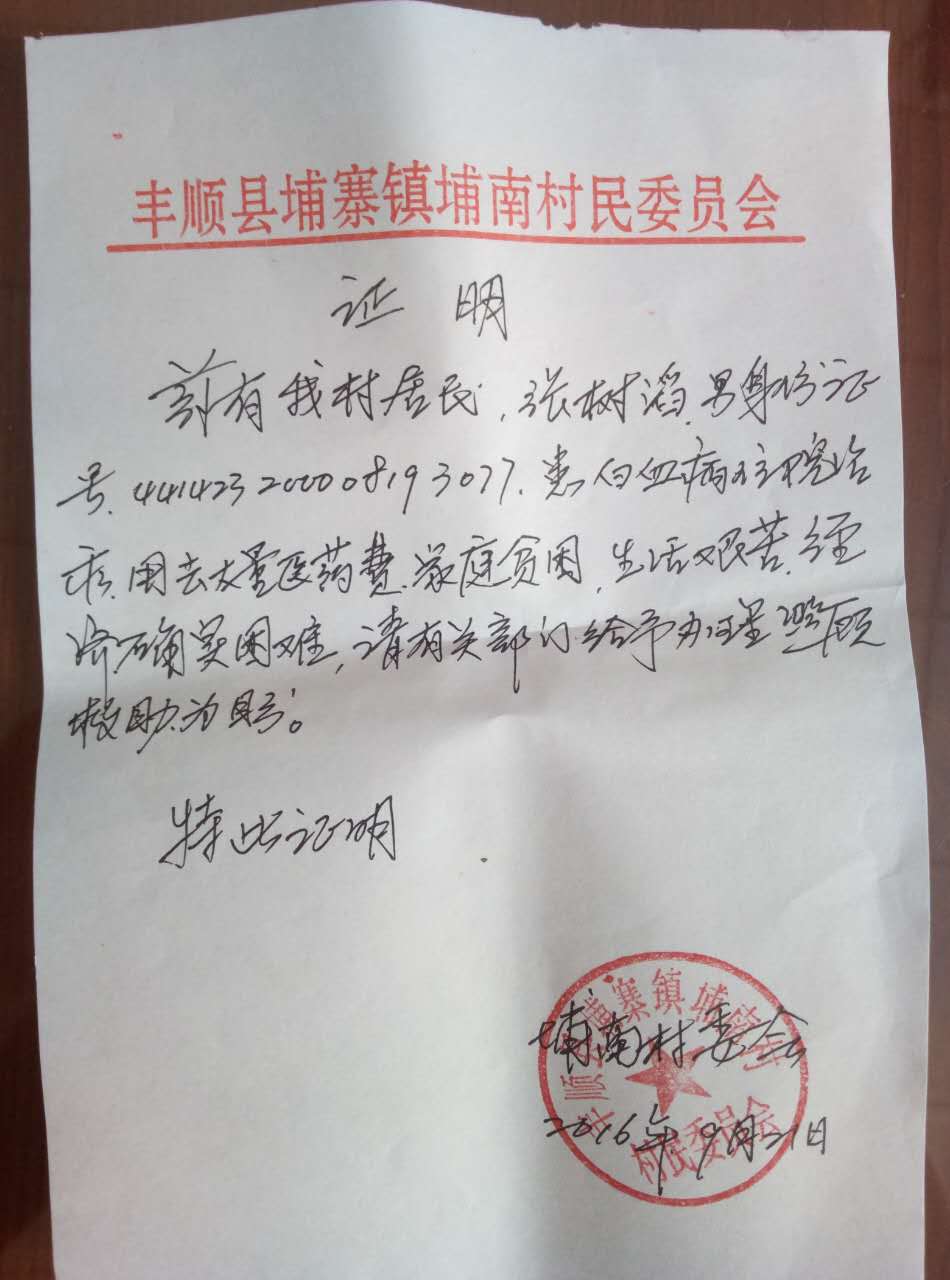 丰顺县埔寨镇埔南村民委员会
证 明
兹有我村居民,张树滔,男身份证
号.441423200008193077.患白血病住院治
疗.用去大量医药费.家庭贫困,生活艰苦.经
济确实困难,请有关部门给予办理照顾
救助为盼。
特此证明
埔南村委会
2016年9月21日
丰顺县埔寨镇埔南村
村民委员会